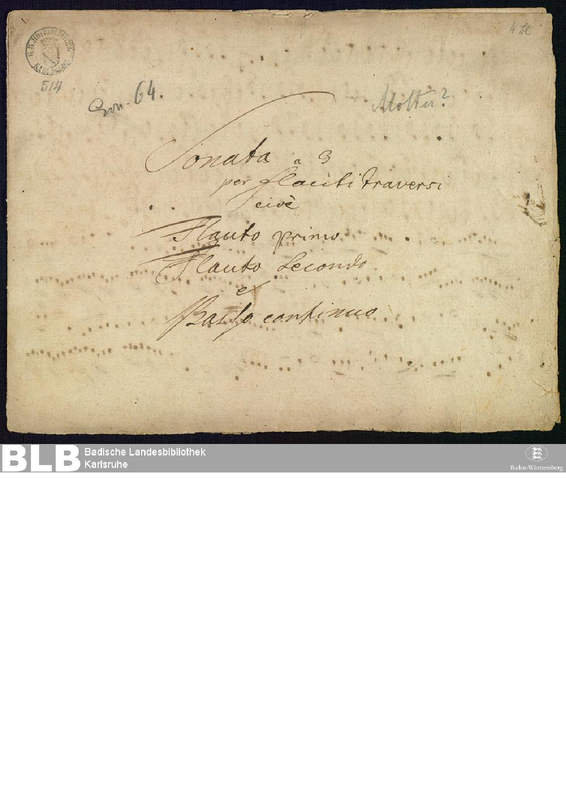 4 St
514
64.
Molter?
Sonata a 3
per flauti traversi
cioè
Flauto primo
Flauto Secondo
e
Basso continuo
BLB
Badische Landesbibliothek
Karlsruhe
Baden-Württemberg